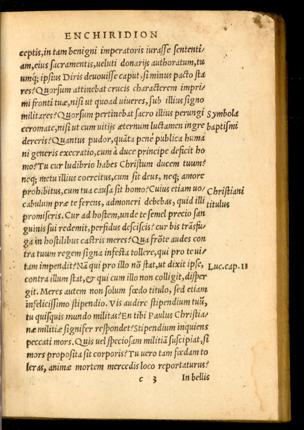 ENCHIRIDION
ceptis, in tam benigni imperatoris iurasse sententi-
am, eius sacramentis, ueluti donarijs authoratum, tu
umq; ipsius Diris deuouisse caput, si minus pacto sta
res? Quorsum attinebat crucis characterem impri-
mi fronti tuæ, nisi ut quoad uiueres, sub illius signo
militares? Quorsum pertinebat sacro illius perungi
ceromate, nisi ut cum uitijs æternum luctamen ingre
dereris? Quantus pudor, quàta penè publica huma
ni generis execratio, cum à duce principe deficit ho
mo? Tu cur ludibrio habes Christum ducem tuum?
neq; metu illius coercitus, cum sit deus, neq; amore
prohibitus, cum tua causa sit homo? Cuius etiam uo/
cabulum præ te ferens, admoneri debebas, quid illi
promiseris. Cur ad hostem, unde te semel precio san
guinis sui redemit, perfidus desciscis? cur bis trãsfu-
ga in hostilibus castris meres? Qua frõte audes con
tra tuum regem signa infesta tollere, qui pro te ui/
tam impendit? Nã qui pro illo nõ stat, ut dixit ipse,
contra illum stat, & qui cum illo non colligit, disper
git. Meres autem non solum fœdo titulo, sed etiam
infelicissimo stipendio. Vis audire stipendium tuũ,
tu quisquis mundo militas? En tibi Paulus Christia/
næ militiæ signifer respondet: Stipendium inquiens
peccati mors. Quis uel speciosam militiã suscipiat, si
mors proposita sit corporis? Tu uero tam fœdam to
leras, animæ mortem mercedis loco reportaturus?
Symbola
baptismi
Christiani
titulus
Luc. cap. 11
c 3
In bellis